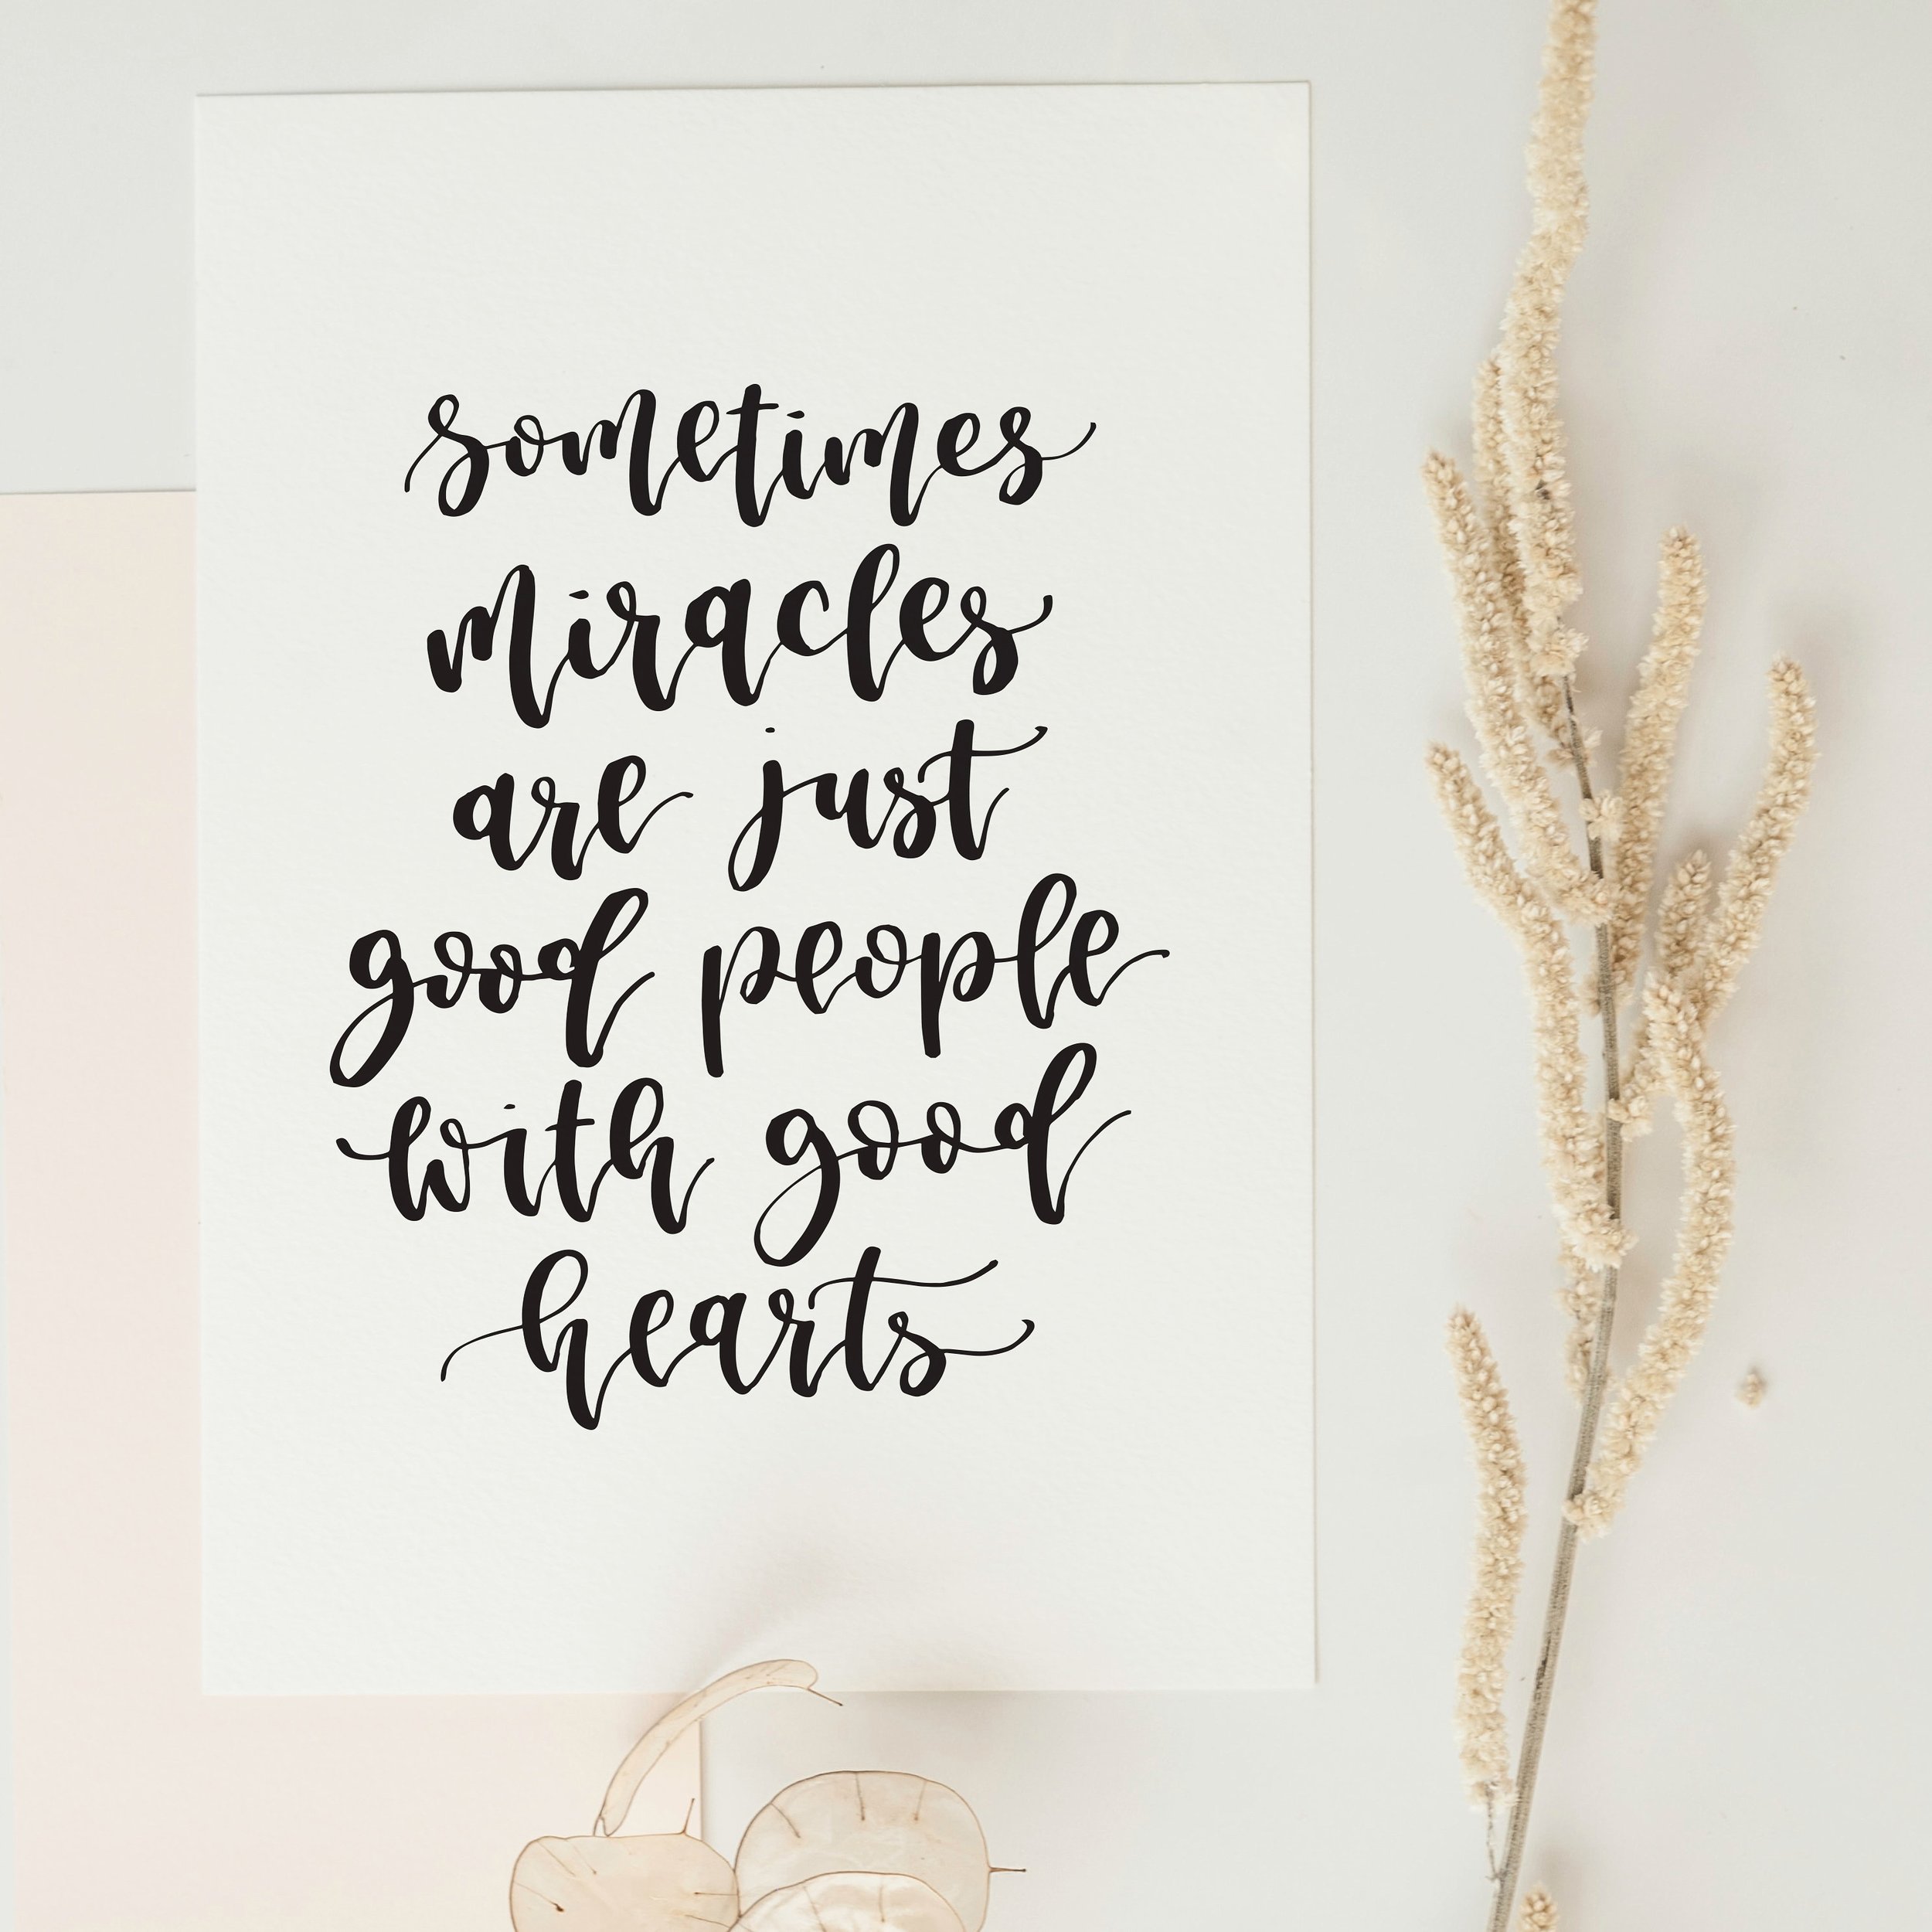 sometimes
miracles
are just
good people
with good
hearts